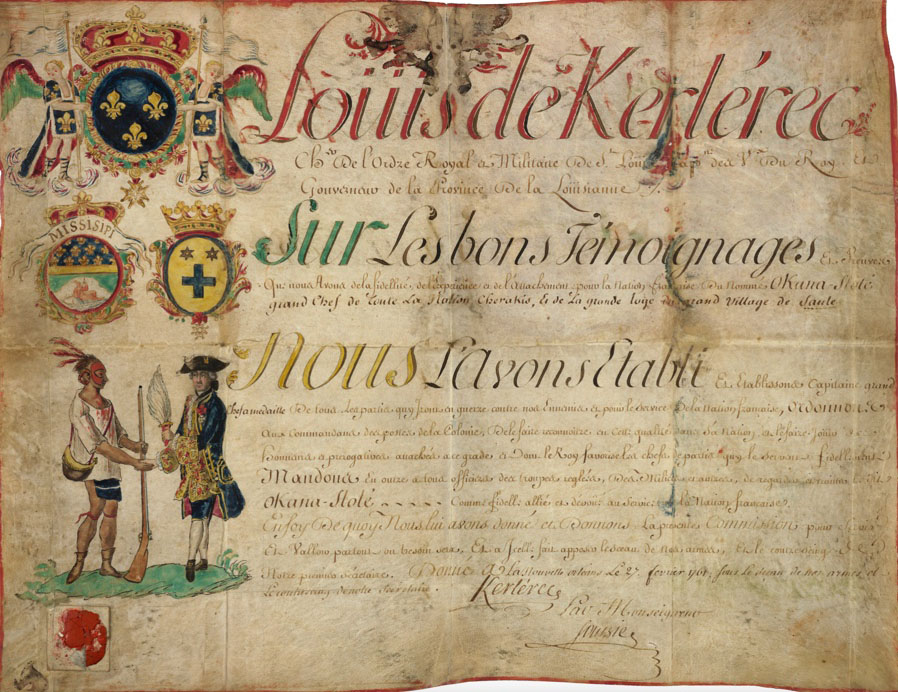 Loüis de Kerlérec
Ch.er De l'Ordre Royal et Militaire De St. Louis, Cap.ne des V.x Du Roy, et
Gouverneur de la Province De la Louisianne
MISSISIPI
Sur Les bons Témoignages Et Preuves
Que nous Avons de la fidellité, de l'Experience et de l'Attachement pour la Nation française Du Nommé Okana-Stoté
grand Chef de toute La Nation Cherakis, Et de La grande loge du grand village de Sauté
Nous L'avons Etabli Et Etablissons Capitaine grand
Chef a medaille De tous Les partis quy Iront a guerre contre nos Ennemis et pour le service De la Nation française, Ordonnons
Aux Commandans des postes de la Colonie, De le faire reconnoitre en cette qualité dans Sa Nation, et le faire Jouir
honneurs et prérogatives attachés a ce grade et Dont le Roy favorise Les chefs de partis quy le servent fidellement
Mandons En outre a tous officiers des troupes reglées, Des Milices et autres, de regarder
Okana-Stoté Comme fidelle allié et devoué au Service De la Nation française
En foy De quoy Nous lui avons donné et Donnons La presente Commission pour
Et Valloir partout ou besoin sera, Et a Icelle fait apposer le sceau de nos armes, et le contreseing
Notre premier Secretaire. Donné A La Nouvelle orleans Le 27 fevrier 1761, sous le sceau de nos armes, et
Le contreseing de notre Secretaire.
Kerlérec
Par Monseigneur